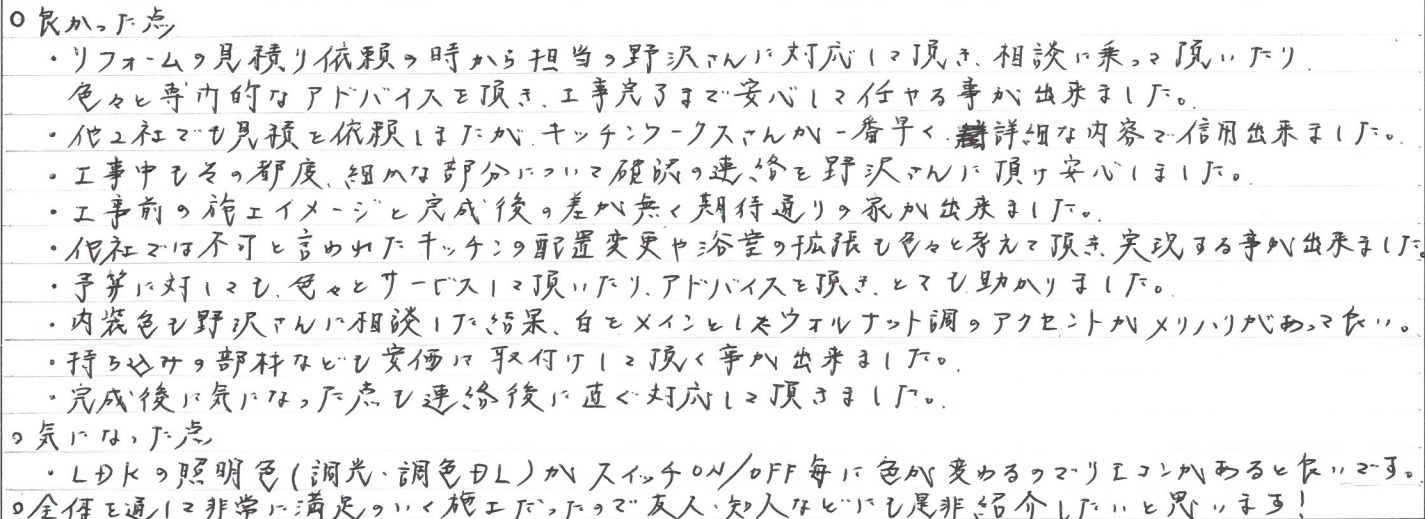 ○良かった点
・リフォームの見積り依頼の時から担当の野沢さんに対応して頂き、相談に乗って頂いたり、
色々と専門的なアドバイスを頂き、工事完了まで安心して任せる事が出来ました。
・他2社でも見積を依頼しましたが、キッチンワークスさんが一番早く詳細な内容で信用出来ました。
・工事中もその都度、細かな部分について確認の連絡を野沢さんに頂け安心しました。
・工事前の施工イメージと完成後の差が無く期待通りの家が出来ました。
・他社では不可と言われたキッチンの配置変更や浴室の拡張も色々と考えて頂き、実現する事が出来ました。
・予算に対しても、色々とサービスして頂いたり、アドバイスを頂き、とても助かりました。
・内装色も野沢さんに相談した結果、白をメインとしたウォルナット調のアクセントがメリハリがあって良い。
・持ち込みの部材なども安価に取付けして頂く事が出来ました。
・完成後に気になった点も連絡後に直ぐ対応して頂きました。
○気になった点
・LDKの照明色(調光・調色DL)がスイッチON/OFF毎に色が変わるのでリモコンがあると良いです。
○全体を通して非常に満足のいく施工だったので友人・知人などにも是非紹介したいと思います!